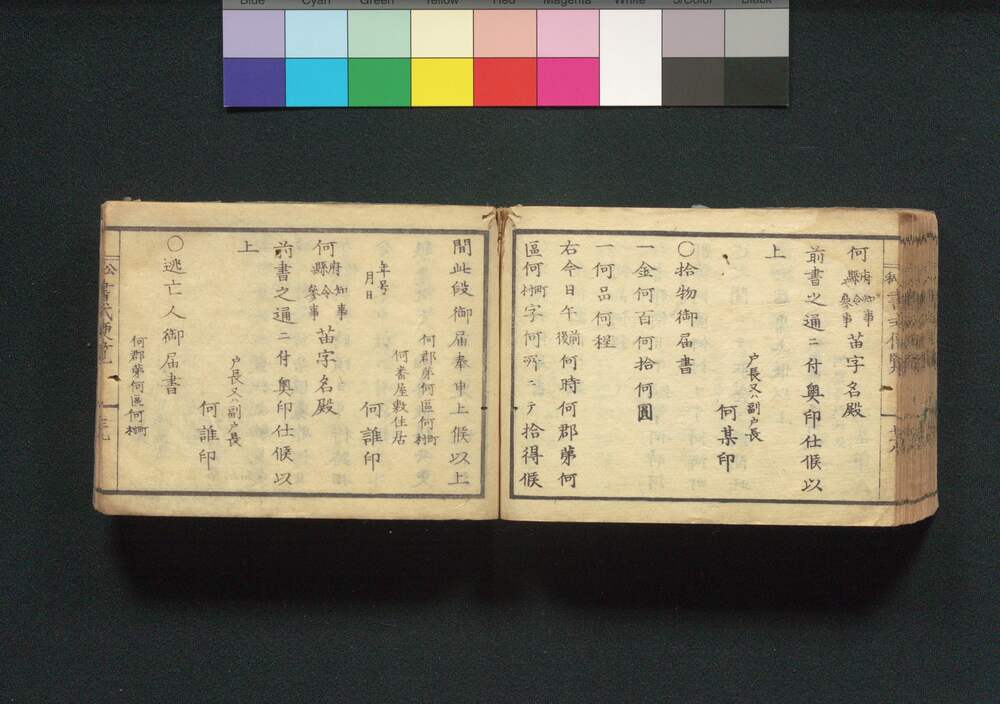 Blue Cyan Green Yellow Red Magenta White 3/Color Black
何府縣知令參事事 苗字名殿
前書之通ニ付奥印仕候以
上
戸長又ハ副戸長
何某印
〇拾物御届書
一金何百何拾何圓
一何品何程
右今日午前後何時何郡第何
區何町村字何所ニテ拾得候
間此段御届奉申上候以上
何郡第何區何町村
何番屋敷住居
年号月日
何誰印
何府縣知令參事事 苗字名殿
前書之通ニ付奥印仕候以
上
戸長又ハ副戸長
何誰印
〇逃亡人御届書
何郡第何區何町村